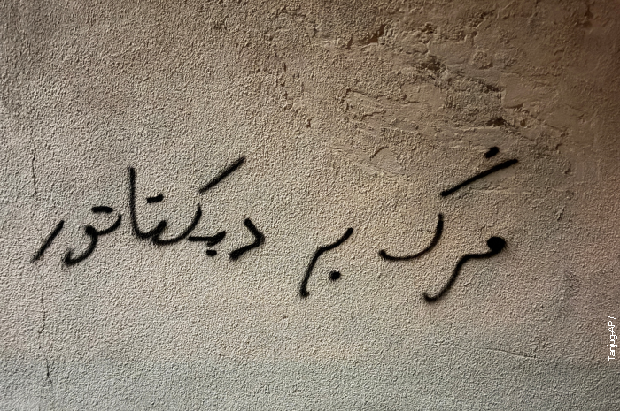 مرگ بر دیکتاتور
Tanjug-AP /